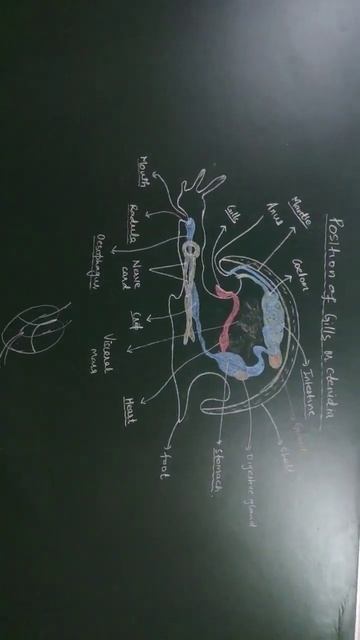 Position of Gills or Ctenidia
Mantle
Anus
Gills
Coelom
Intestine
Gonad
Shell
Digestive gland
Stomach
Foot
Mouth
Radula
Oesophagus
Nerve
cord
Gut
Visceral
mass
Heart